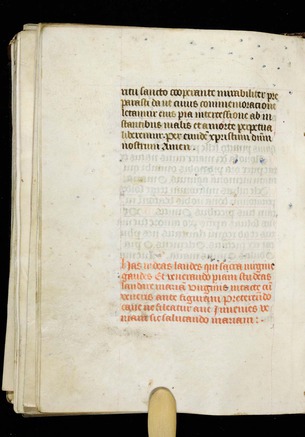 ritu sancto cooperante mirabiliter pre
parasti da ut cuius commemoracione
letamur eius pia intercessione ab in
stantibus malis et a morte perpetua
liberemur. Per eundē xpristum dnm
nostrum Amen.
Has videas laudes qui sacra virgine
gaudes Et venerando piam studeas
laudare mariam Virginis intacte cū
veneris ante figuram Pretereundo
cave ne sileatur ave Invenies ve
niam sic salutando mariam :